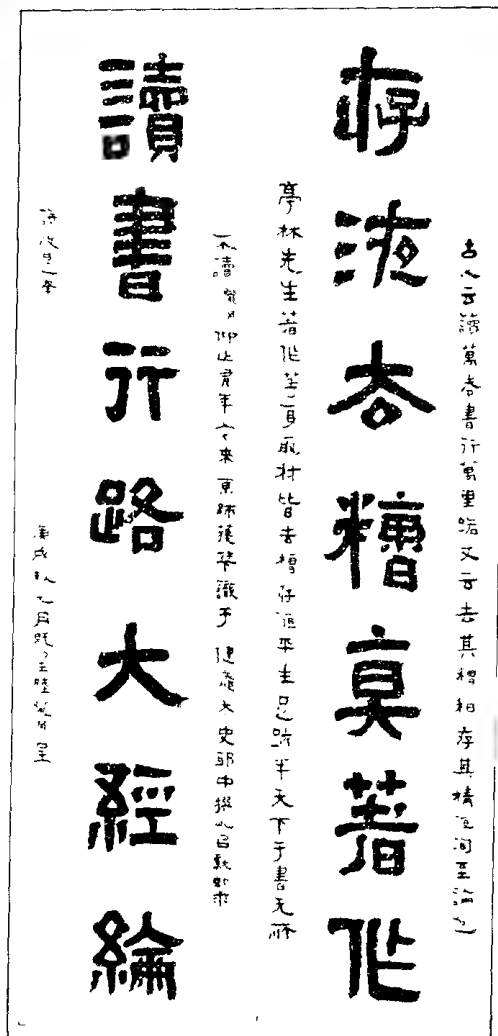 古人云讀萬卷書行萬里路又云去其糟粕存其精液洵至論也
存液去糟真著作
亭林先生著作等身取材皆去糟存液平生足跡半天下于書无所
不讀 仰止有年今來京師獲 識于健庵太史邸中撰此呂就
讀書行路大經綸
庚戌秋九月既望